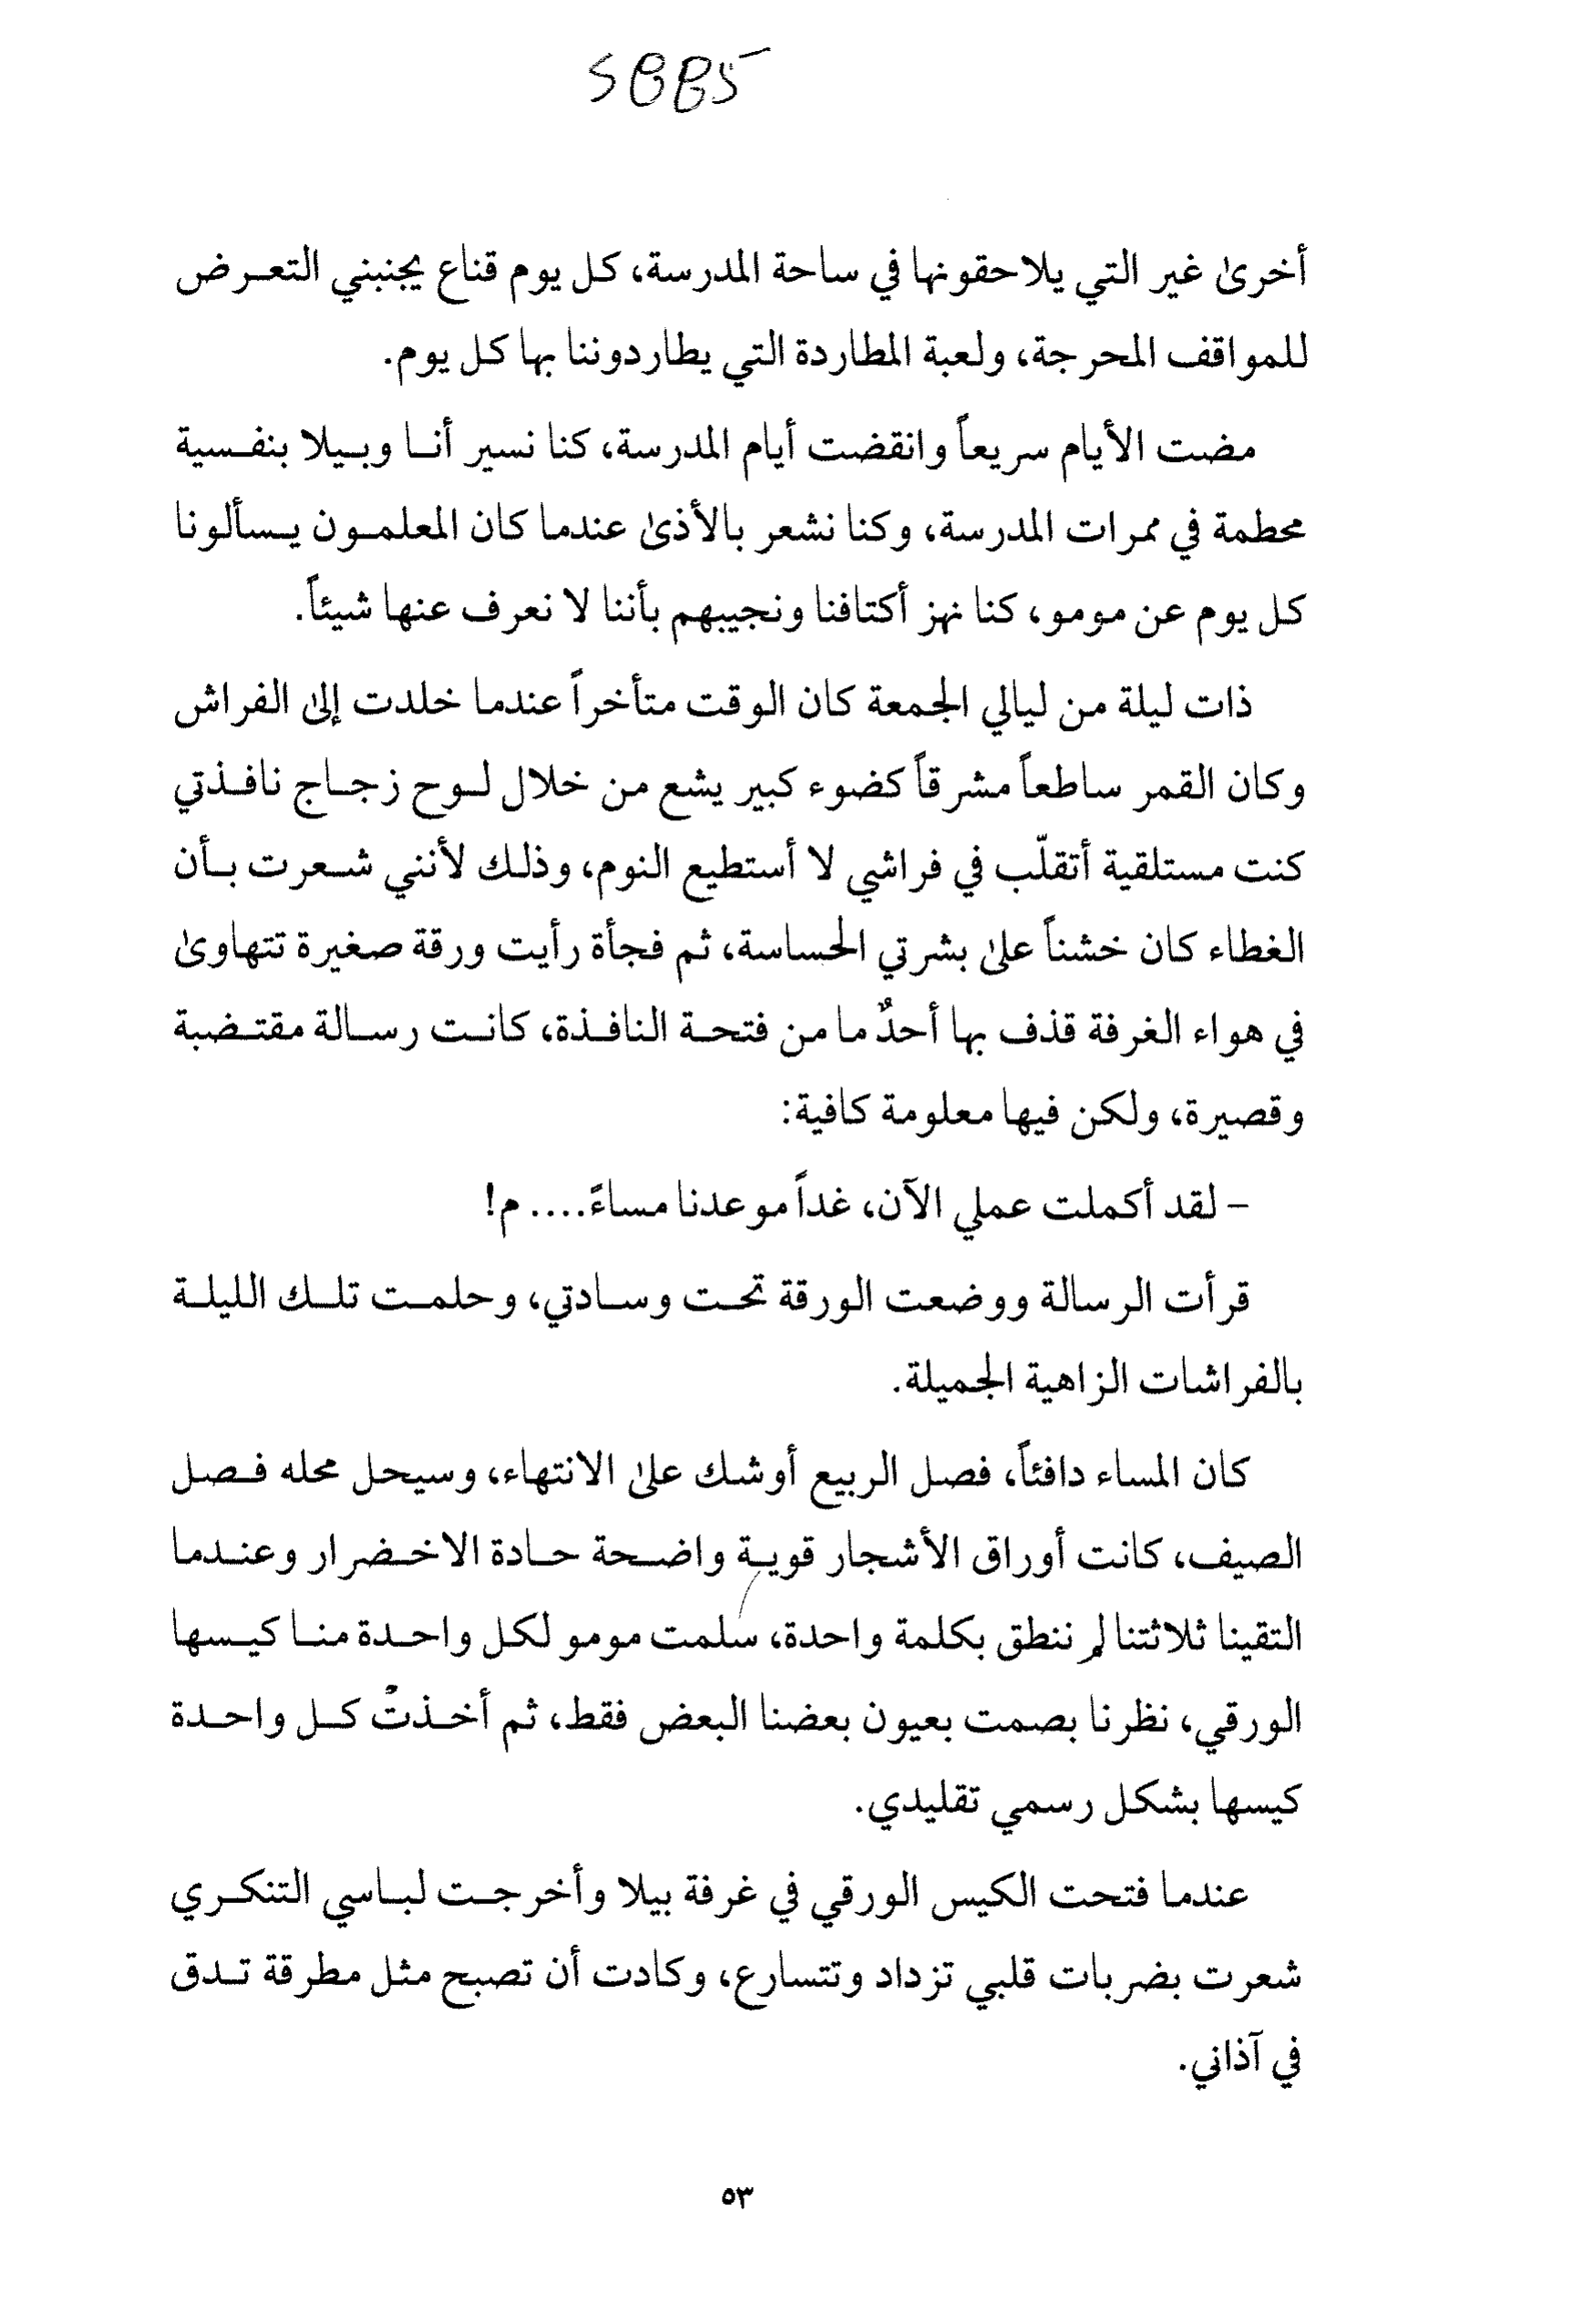 SBBS
أخرىٰ غير التي يلاحقونها في ساحة المدرسة، كل يوم قناع يجنبني التعرض
للمواقف المحرجة، ولعبة المطاردة التي يطاردوننا بها كل يوم.
مضت الأيام سريعاً وانقضت أيام المدرسة، كنا نسير أنا وبيلا بنفسية
محطمة في ممرات المدرسة، وكنا نشعر بالأذىٰ عندما كان المعلمون يسألونا
كل يوم عن مومو، كنا نهز أكتافنا ونجيبهم بأننا لا نعرف عنها شيئاً.
ذات ليلة من ليالي الجمعة كان الوقت متأخراً عندما خلدت إلىٰ الفراش
وكان القمر ساطعاً مشرقاً كضوء كبير يشع من خلال لوح زجاج نافذتي
كنت مستلقية أتقلّب في فراشي لا أستطيع النوم، وذلك لأنني شعرت بأن
الغطاء كان خشناً علىٰ بشرتي الحساسة، ثم فجأة رأيت ورقة صغيرة تتهاوىٰ
في هواء الغرفة قذف بها أحدٌ ما من فتحة النافذة، كانت رسالة مقتضبة
وقصيرة، ولكن فيها معلومة كافية:
- لقد أكملت عملي الآن، غداً موعدنا مساءً.... م!
قرأت الرسالة ووضعت الورقة تحت وسادتي، وحلمت تلك الليلة
بالفراشات الزاهية الجميلة.
كان المساء دافئاً، فصل الربيع أوشك علىٰ الانتهاء، وسيحل محله فصل
الصيف، كانت أوراق الأشجار قوية واضحة حادة الاخضرار وعندما
التقينا ثلاثتنا لم ننطق بكلمة واحدة، سلمت مومو لكل واحدة منا كيسها
الورقي، نظرنا بصمت بعيون بعضنا البعض فقط، ثم أخذتْ كل واحدة
كيسها بشكل رسمي تقليدي.
عندما فتحت الكيس الورقي في غرفة بيلا وأخرجت لباسي التنكري
شعرت بضربات قلبي تزداد وتتسارع، وكادت أن تصبح مثل مطرقة تدق
في آذاني.
٥٣